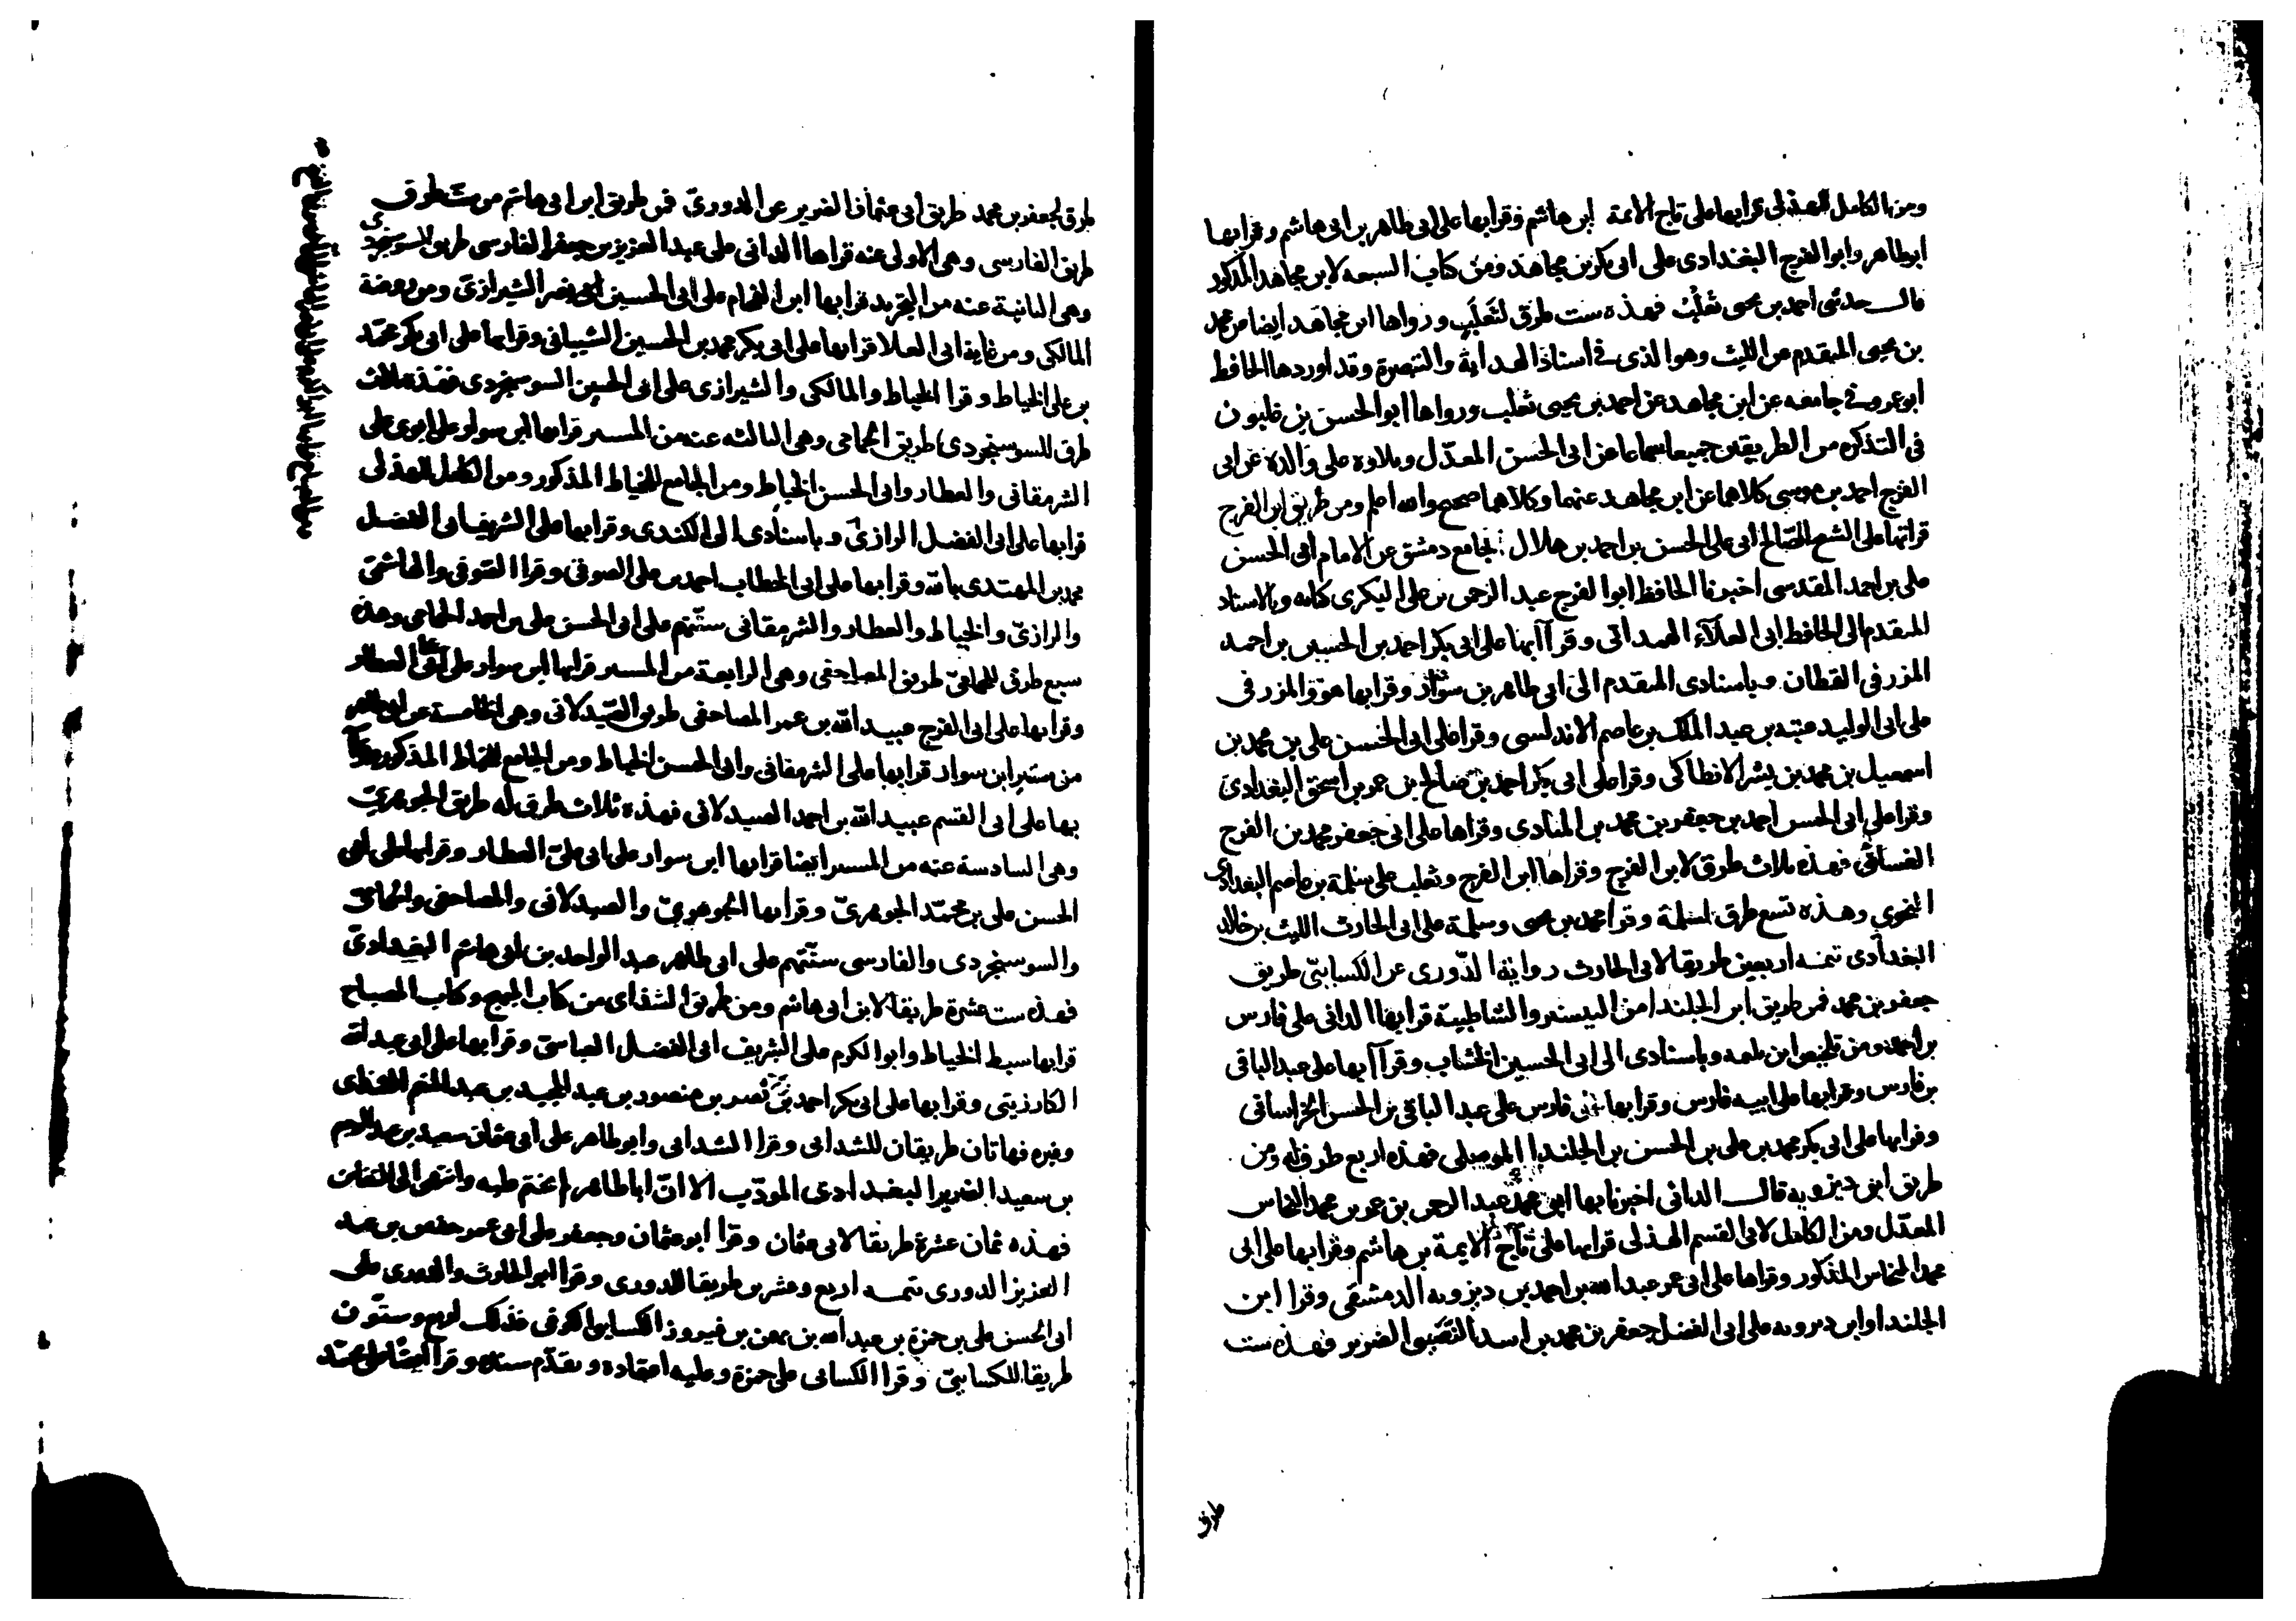 ومن الكامل للهذلى قرا بها على تاج الائمة ابن هاشم وقرا بها على ابى طاهر بن ابى هاشم وقرا بها
ابو طاهر وابو الفرج البغدادى على ابى بكر بن مجاهد ومن كتاب السبعه لابن مجاهد المذكور
قال حدثنى احمد بن يحيى ثعلب فهذه ست طرق لثعلب ورواها ابن مجاهد ايضا عن محمد
بن يحيى المتقدم عن الليث وهو الذى فى اسناد الهداية والتبصرة وقد اوردها الحافظ
ابو عمرو فى جامعه عن ابن مجاهد عن احمد بن يحيى ثعلب ورواها ابو الحسن بن غلبون
فى التذكره من الطريقين جميعا سماعا عن ابى الحسن المعدّل وتلاوه على والده عن ابى
الفرج احمد بن موسى كلاهما عن ابن مجاهد عنهما وكلاهما صحيح والله اعلم ومن طريق ابن الفرج
قراتها على الشيخ الصالح ابى على الحسن بن احمد بن هلال بجامع دمشق عن الامام ابى الحسن
على بن احمد المقدسى اخبرنا الحافظ ابو الفرج عبد الرحمن بن على البكرى كتابه وبالاسناد
المتقدم الى الحافظ ابى العلاء الهمدانى وقرآ بها على ابى بكر احمد بن الحسين بن احمد
المزرفى القطان وباسنادى المتقدم الى ابى طاهر بن سوار وقرا بها هو والمزرفى
على ابى الوليد عتبه بن عبد الملك بن عاصم الاندلسى وقرا على ابى الحسن على بن محمد بن
اسمعيل بن محمد بن بشر الانطاكى وقرا على ابى بكر احمد بن صالح بن عمر بن اسحق البغدادى
وقرا على ابى الحسن احمد بن جعفر بن محمد بن المنادى وقراها على ابى جعفر محمد بن الفرج
الغسانى فهذه ثلاث طرق لابن الفرج وقراها ابن الفرج وثعلب على سلمة بن عاصم البغدادى
النحوى وهذه تسع طرق لسلمة وقرا محمد بن يحيى وسلمة على ابى الحارث الليث بن خالد
البغدادى تتمه اربعين طريقا لابى الحارث رواية الدّورى عن الكسائىّ طريق
جعفر بن محمد فمن طريق ابن الجلندا من التيسير والشاطبية قرا بها الدانى على فارس
بن احمد ومن تلخيص ابن بلمه وباسنادى الى ابى الحسين الخشاب وقرآ بها على عبد الباقى
بن فارس وقرا بها على ابيه فارس وقرا بها فارس على عبد الباقى بن الحسن الخراسانى
وقرا بها على ابى بكر محمد بن على بن الحسن بن الجلندا الموصلى فهذه اربع طرق له ومن
طريق ابن ديزويه قال الدانى اخبرنا بها ابو محمد عبد الرحمن بن عمر بن محمد النحاس
المعدّل ومن الكامل لابى القسم الهذلى قرا بها على تاج الايمة بن هاشم وقرا بها على ابى
محمد النحاس المذكور وقراها على ابى عمر عبد الله بن احمد بن ديزويه الدمشقى وقرا ابن
الجلندا وابن ديزويه على ابى الفضل جعفر بن محمد بن اسد النصيبى الضرير فهذه ست
طرق
طرق لجعفر بن محمد طريق ابى عثمان الضرير عن الدورىّ فمن طريق ابن ابى هاشم من ست طرق
طريق الفارسى وهى الاولى عنه قراها الدانى على عبد العزيز بن جعفر الفارسى طريق السوسنجردى
وهى الثانية عنه من التجريد قرا بها ابن الفحام على ابى الحسين نصر الشيرازىّ ومن روضة
المالكى ومن غاية ابى العلا قرا بها على ابى بكر محمد بن الحسين الشيبانى وقرا بها على ابى بكر محمّد
بن على الخياط وقرا الخياط والمالكى والشيرازى على ابى الحسين السوسنجردى فهذه ثلاث
طرق للسوسنجردى طريق الحمامى وهى الثالثه عنه من المستنير قرا بها ابن سوار على ابوى على
الشرمقانى والعطار وابى الحسن الخياط ومن الجامع للخياط المذكور ومن الكامل للهذلى
قرا بها على ابى الفضل الرازىّ وباسنادى الى الكندى وقرا بها على الشريف ابى الفضل
محمد بن المهتدى بالله وقرا بها على ابى الخطاب احمد بن على الصوفى وقرا الصّوفى والهاشمىّ
والرازىّ والخياط والعطار والشرمقانى ستّتهم على ابى الحسن على بن احمد الحمامى وهذه
سبع طرق للحمامىّ طريق المصاحفى وهى الرابعة من المستنير قرا بها ابن سوار على العطار
وقرا بها على ابى الفرج عبيد الله بن عمر المصاحفى طريق الصّيدلانى وهى الخامسة عن ابى طاهر
من ستنير ابن سوار قرا بها على الشرمقانى وابى الحسن الخياط ومن الجامع للخياط المذكور وقرآ
بها على ابى القسم عبيد الله بن احمد الصيدلانى فهذه ثلاث طرق له طريق الجوهرىّ
وهى السادسة عنه من المستنير ايضا قرا بها ابن سوار على ابى علىّ العطار وقرا بها على ابى
الحسن على بن محمّد الجوهرىّ وقرا بها الجوهرىّ والصيدلانى والمصاحفى والحمامىّ
والسوسنجردى والفارسى ستّتهم على ابى طاهر عبد الواحد بن ابى هاشم البغدادىّ
فهذه ست عشرة طريقا لابن ابى هاشم ومن طريق الشذاى من كتاب المبهج وكتاب المصباح
قرا بها سبط الخياط وابو الكرم على الشريف ابى الفضل العباسىّ وقرا بها على ابى عبد الله
الكارزينى وقرا بها على ابى بكر احمد بن نصر بن منصور بن عبد المجيد بن عبد المنعم الشذاى
وغيره فهاتان طريقان للشذاى وقرا الشذاى وابو طاهر على ابى عثمان سعيد بن عبد الرحيم
بن سعيد الضرير البغدادى المودّب الا انّ ابا طاهر لم يختم عليه وانتهى الى التغابن
فهذه ثمان عشرة طريقا لابى عثمان وقرا ابو عثمان وجعفر على ابى عمر حفص بن عبد
العزيز الدورى تتمه اربع وعشرين طريقا للدورى وقرا ابو الحارث والدورى على
ابى الحسن على بن حمزة بن عبد الله بن بهمن بن فيروز الكسائى الكوفى فذلك اربع وستّون
طريقا للكسائىّ وقرا الكسائى على حمزة وعليه اعتماده وتقدّم سنده وقرا ايضا على محمّد